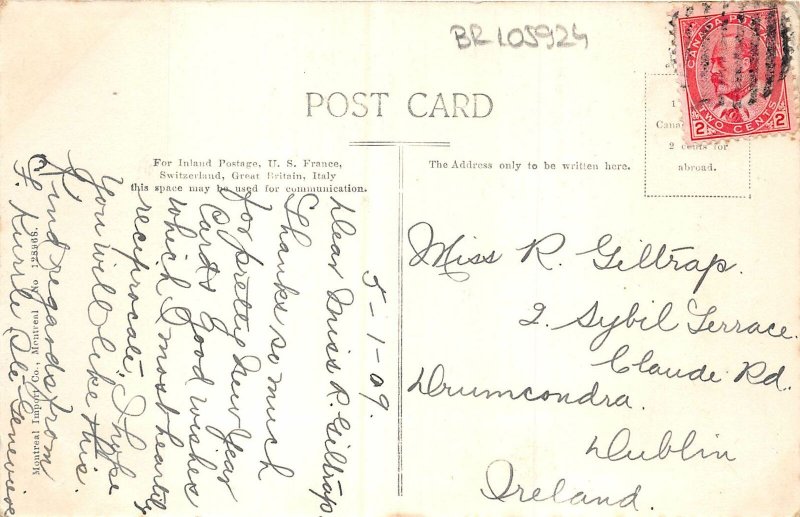 BR105924
CANADA POSTAGE
2 TWO CENTS 2
POST CARD
For Inland Postage, U. S. France,
Switzerland, Great Britain, Italy
this space may be used for communication.
The Address only to be written here.
1
Cana
2 cents for
abroad.
5-1-09.
Dear Miss R. Giltrap
Thanks so much
for pretty New Year
Card & good wishes
which I most heartily
reciprocate, I hope
you will like this.
Kind regards from
Ste Genevieve
Montreal Import Co., Montreal. No
Miss R. Giltrap.
2. Sybil Terrace.
Claude Rd.
Drumcondra.
Dublin
Ireland.